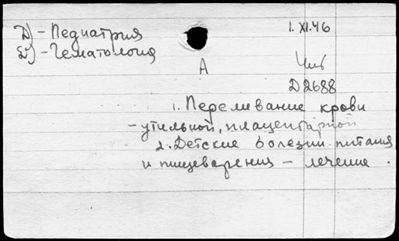 Д) - Педиатрия
Д) - Гематология
1.XI.46
А
Чит
Д2688
1. Переливание крови
- утильной, плацентарной
2. Детские болезни питания
и пищеварения - лечение.